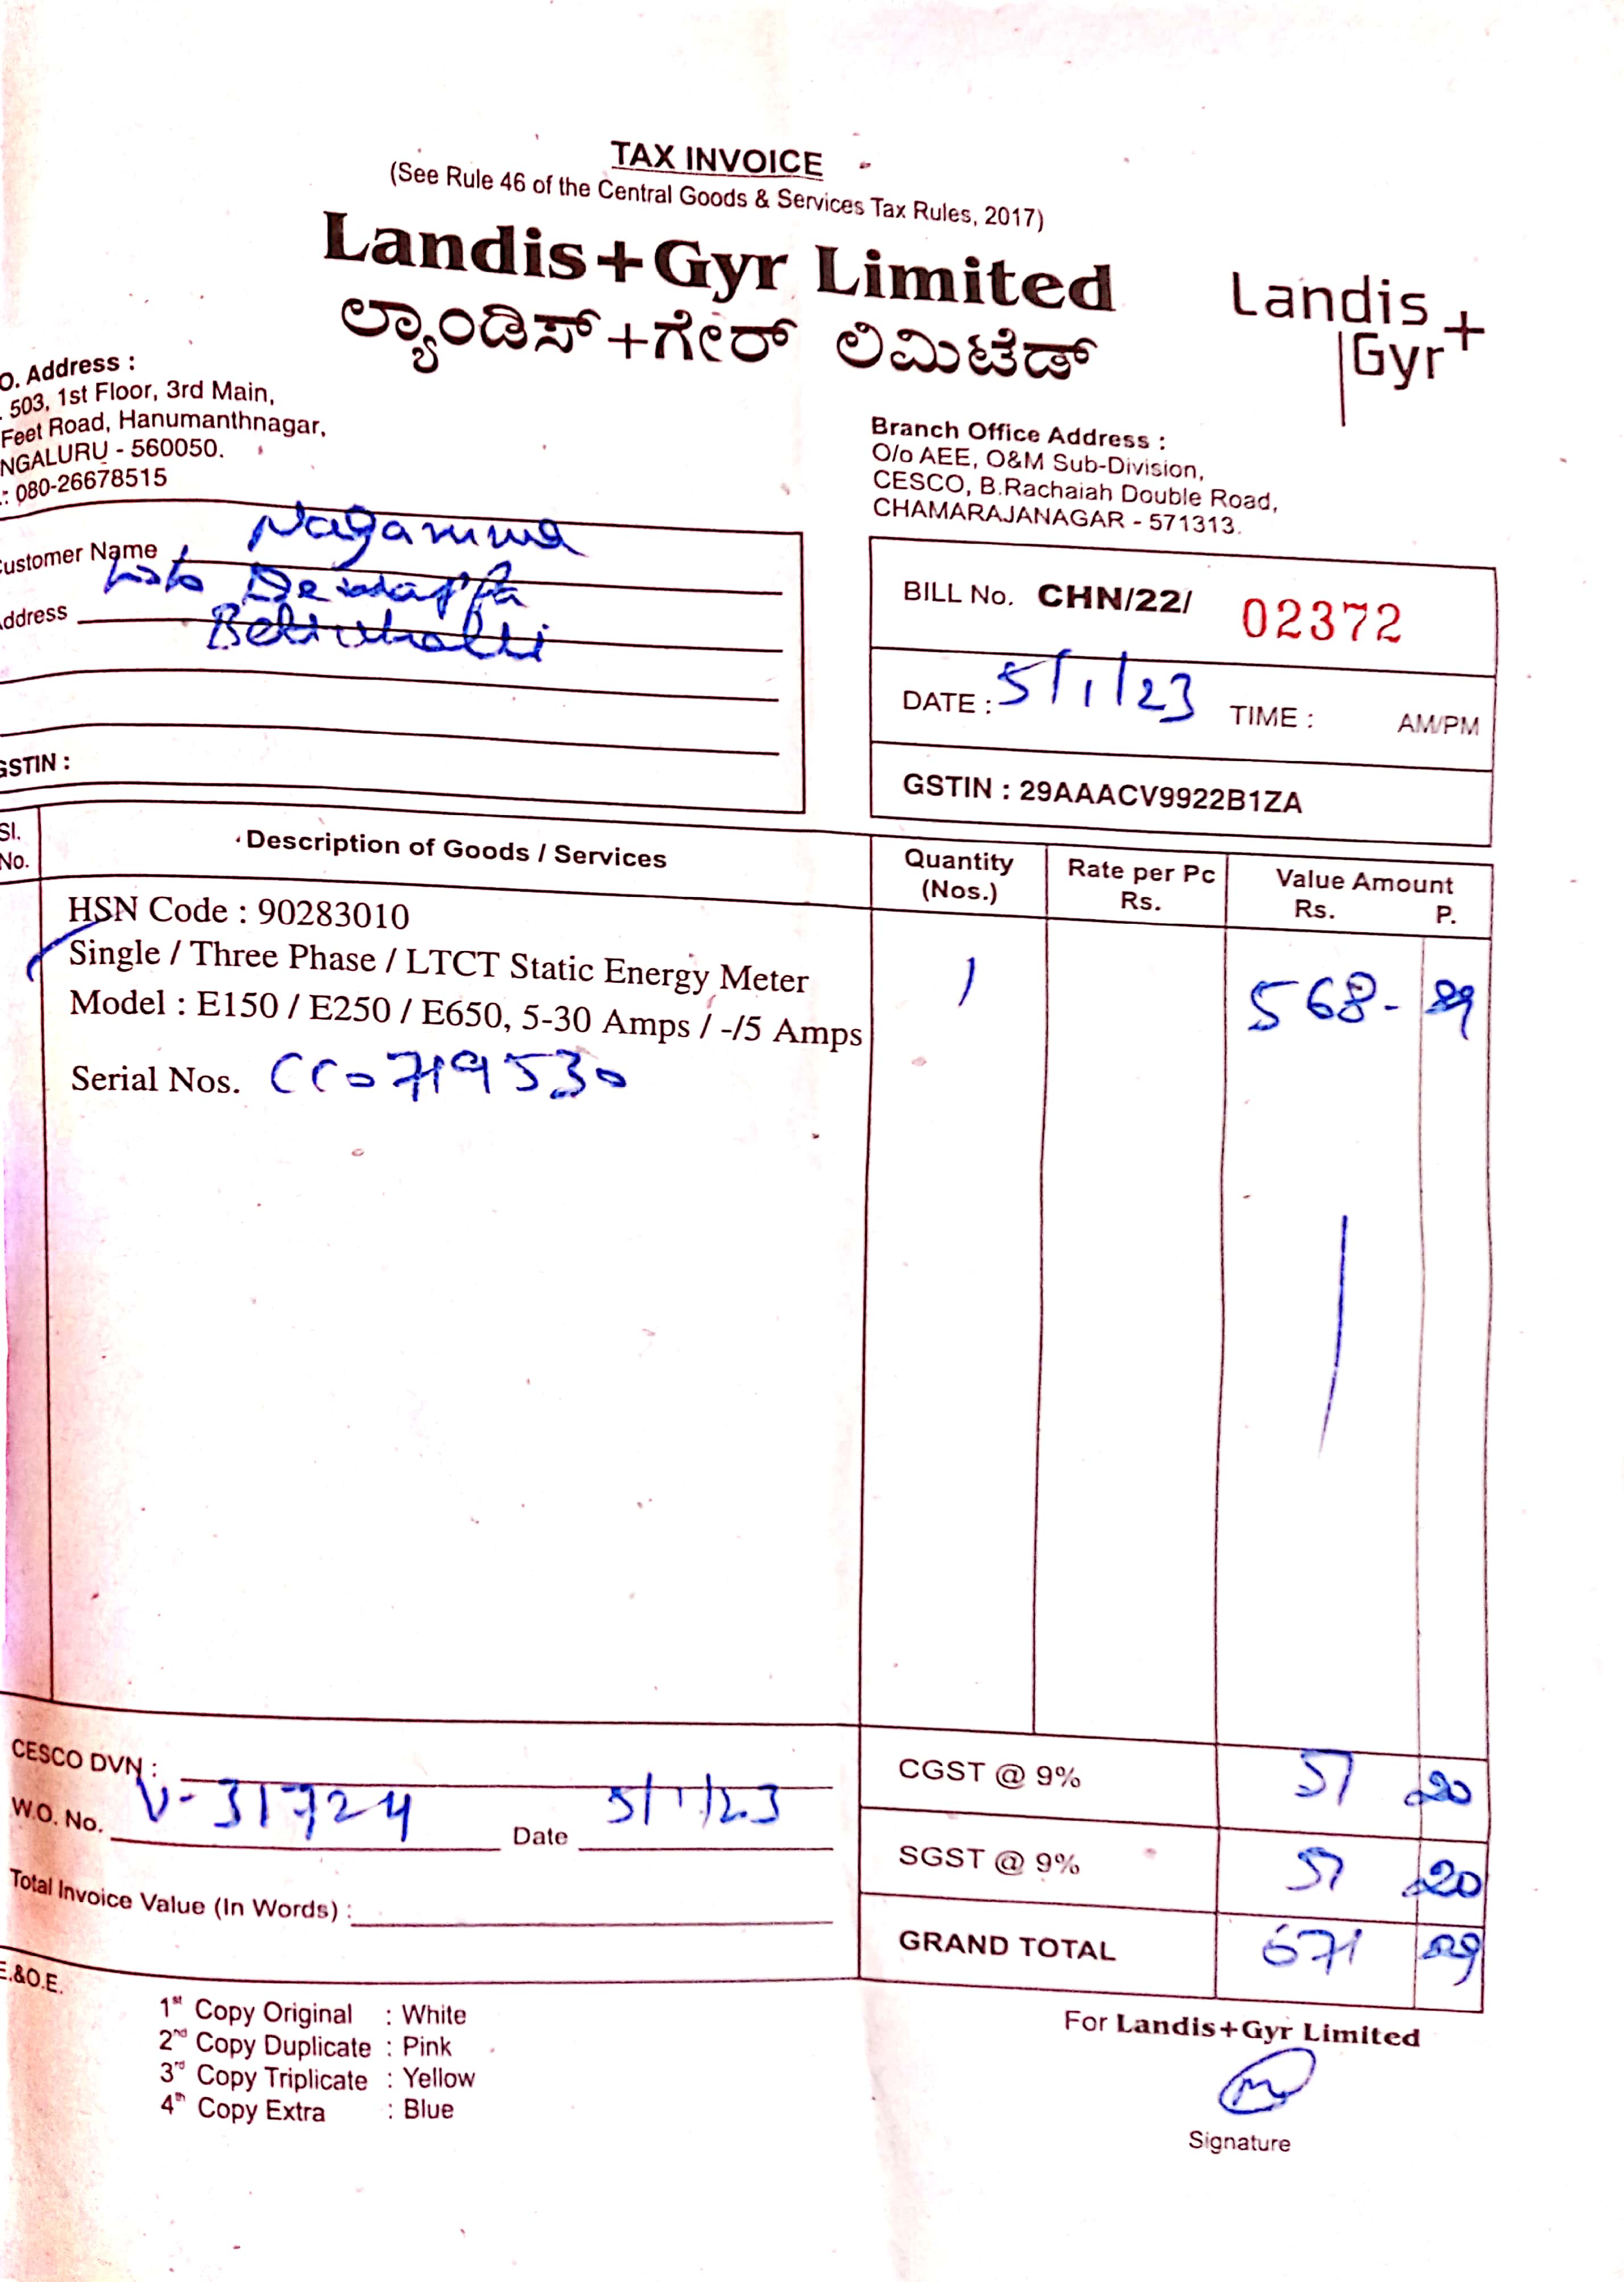 TAX INVOICE
(See Rule 46 of the Central Goods & Services Tax Rules, 2017)
Landis+Gyr Limited
ಲ್ಯಾಂಡಿಸ್+ಗೇರ್ ಲಿಮಿಟೆಡ್
Landis
Gyr+
O. Address :
503, 1st Floor, 3rd Main,
Feet Road, Hanumanthnagar,
NGALURU - 560050.
.: 080-26678515
Branch Office Address :
O/o AEE, O&M Sub-Division,
CESCO, B.Rachaiah Double Road,
CHAMARAJANAGAR - 571313.
ustomer Name Nagamma
ddress
GSTIN :
BILL No. CHN/22/ 02372
DATE : 5/1/23 TIME : AM/PM
GSTIN : 29AAACV9922B1ZA
Sl. No. Description of Goods / Services Quantity (Nos.) Rate per Pc Rs. Value Amount Rs. P.
HSN Code : 90283010
Single / Three Phase / LTCT Static Energy Meter 1 568-
Model : E150 / E250 / E650, 5-30 Amps / -/5 Amps
Serial Nos. CC0719530
CESCO DVN :
W.O. No. V-31724 Date 5/1/23
Total Invoice Value (In Words) :
CGST @ 9% 51 20
SGST @ 9% 51 20
GRAND TOTAL 671 29
E.&O.E.
1st Copy Original : White
2nd Copy Duplicate : Pink
3rd Copy Triplicate : Yellow
4th Copy Extra : Blue
For Landis+Gyr Limited
Signature